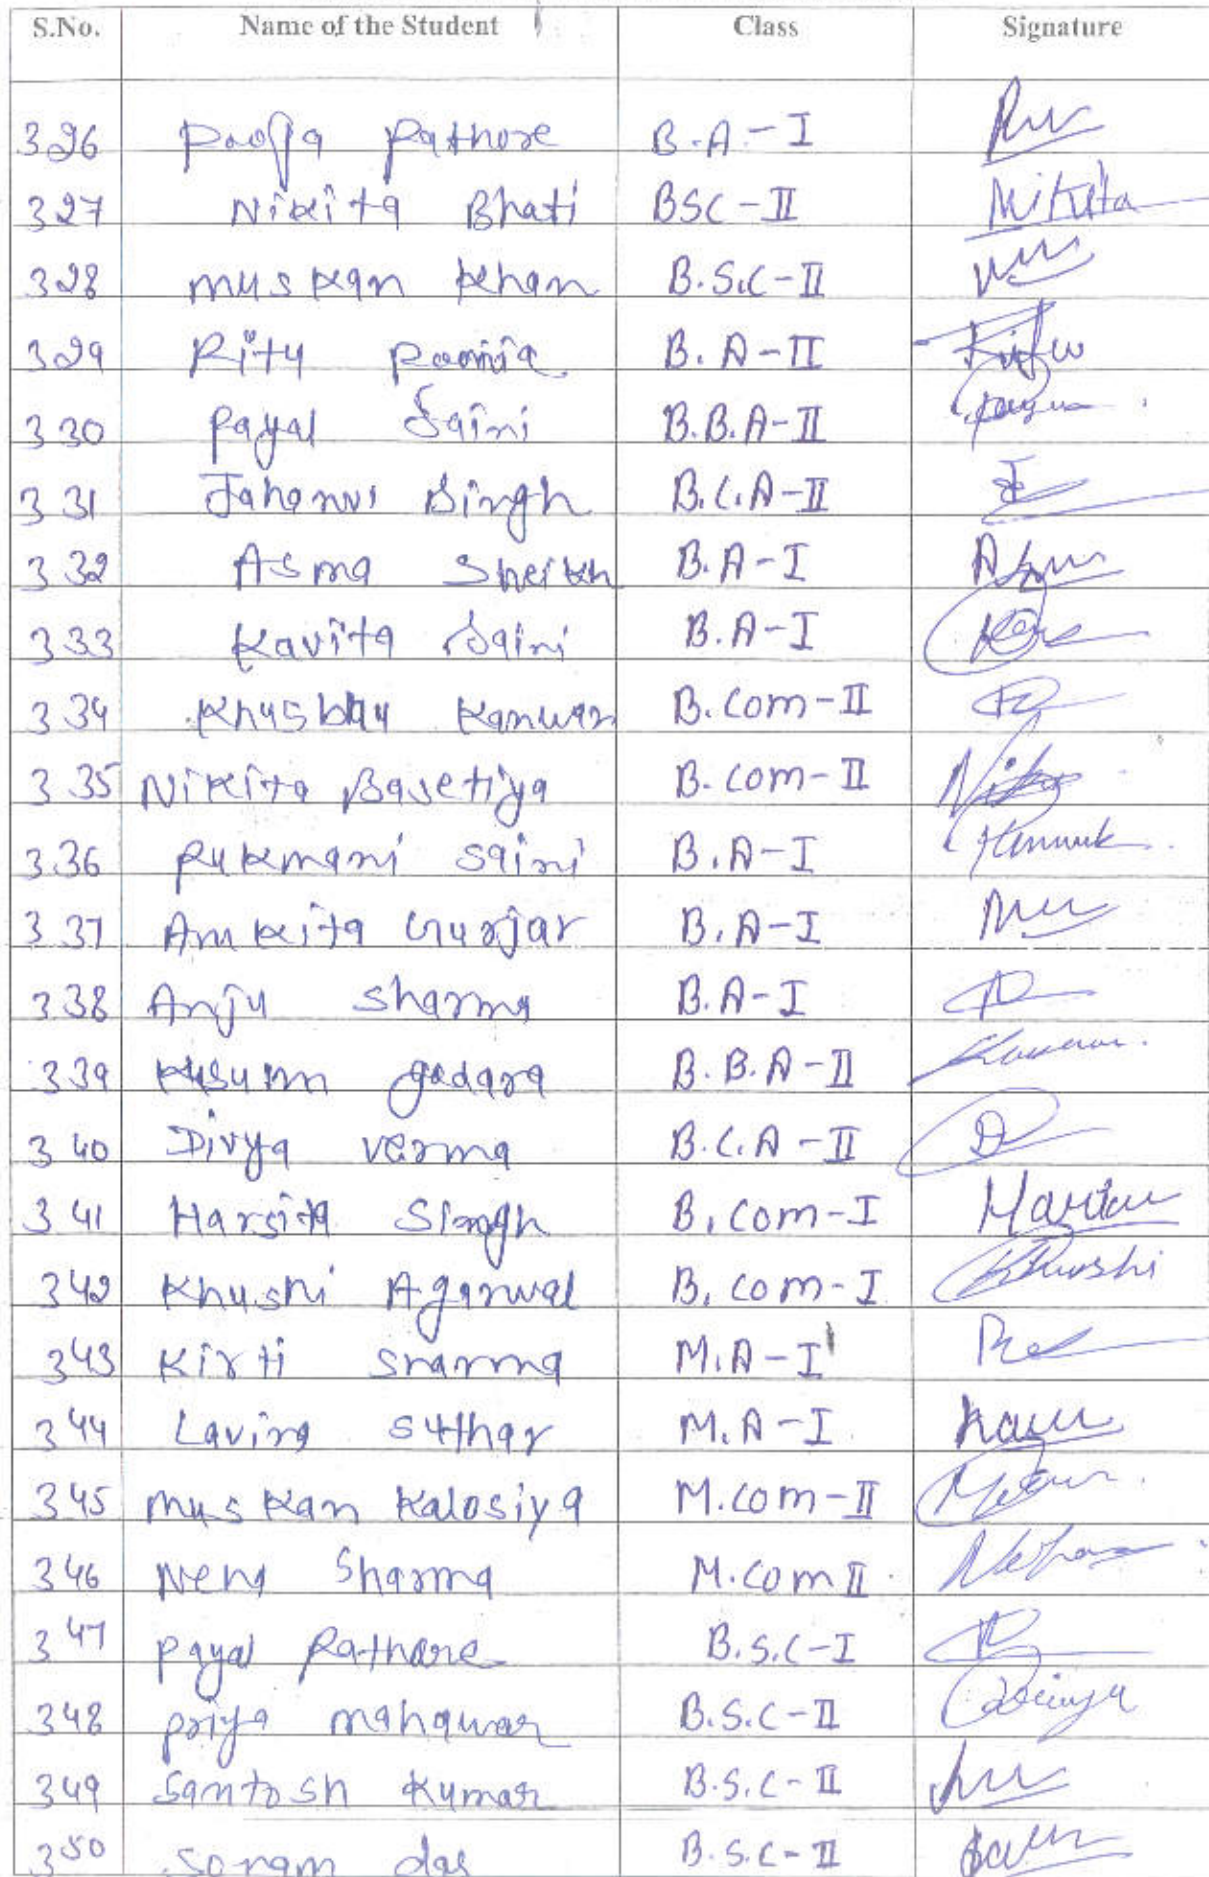 S.No. Name of the Student Class Signature
326 Pooja Rathore B.A.-I
327 Nikita Bhati BSC-II Nikita
328 muskan khan B.S.C-II
329 Ritu Poonia B.A-II Ritu
330 Payal Saini B.B.A-II
331 Jahanvi Singh B.C.A-II
332 Asma Sheikh B.A-I
333 Kavita Saini B.A-I
334 Khusbhu Kanwar B.Com-II
335 Nikita Basetiya B.Com-II
336 Rukmani Saini B.A-I
337 Ankita Gurjar B.A-I
338 Anju Sharma B.A-I
339 Kusum godara B.B.A-II
340 Divya verma B.C.A-II
341 Harsita Singh B.Com-I
342 Khushi Agarwal B.Com-I Khushi
343 Kirti Sharma M.A-I
344 Lavina Suthar M.A-I
345 Muskan Kalosiya M.Com-II
346 Neha Sharma M.Com II Neha
347 Payal Rathore B.S.C-I
348 priya mahawar B.S.C-II
349 Santosh Kumar B.S.C-II
350 Sonam das B.S.C-II